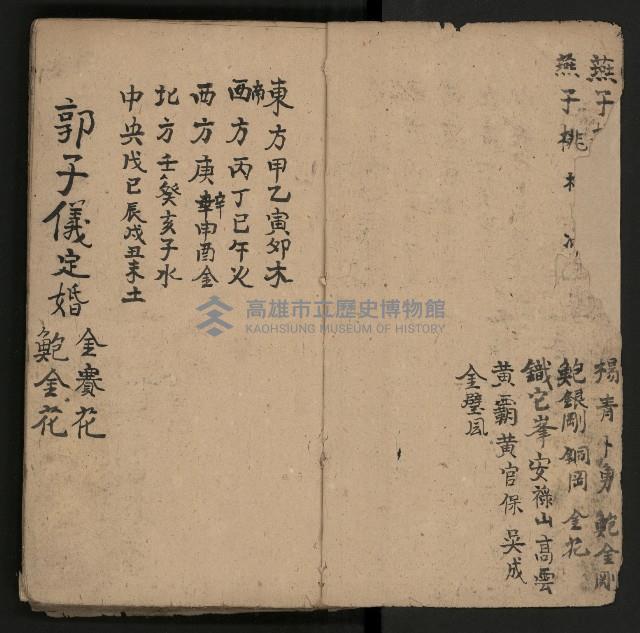 燕子
燕子桃
楊青卜勇鮑金剛
鮑銀剛銅岡金花
鐵它峯安祿山高雲
黃霸黃官保吳成
金璧凤
東方甲乙寅卯木
南
西方丙丁巳午火
西方庚辛申酉金
北方壬癸亥子水
中央戊己辰戌丑未土
郭子儀定婚
金賽花
鮑金花
高雄市立歷史博物館
KAOHSIUNG MUSEUM OF HISTORY